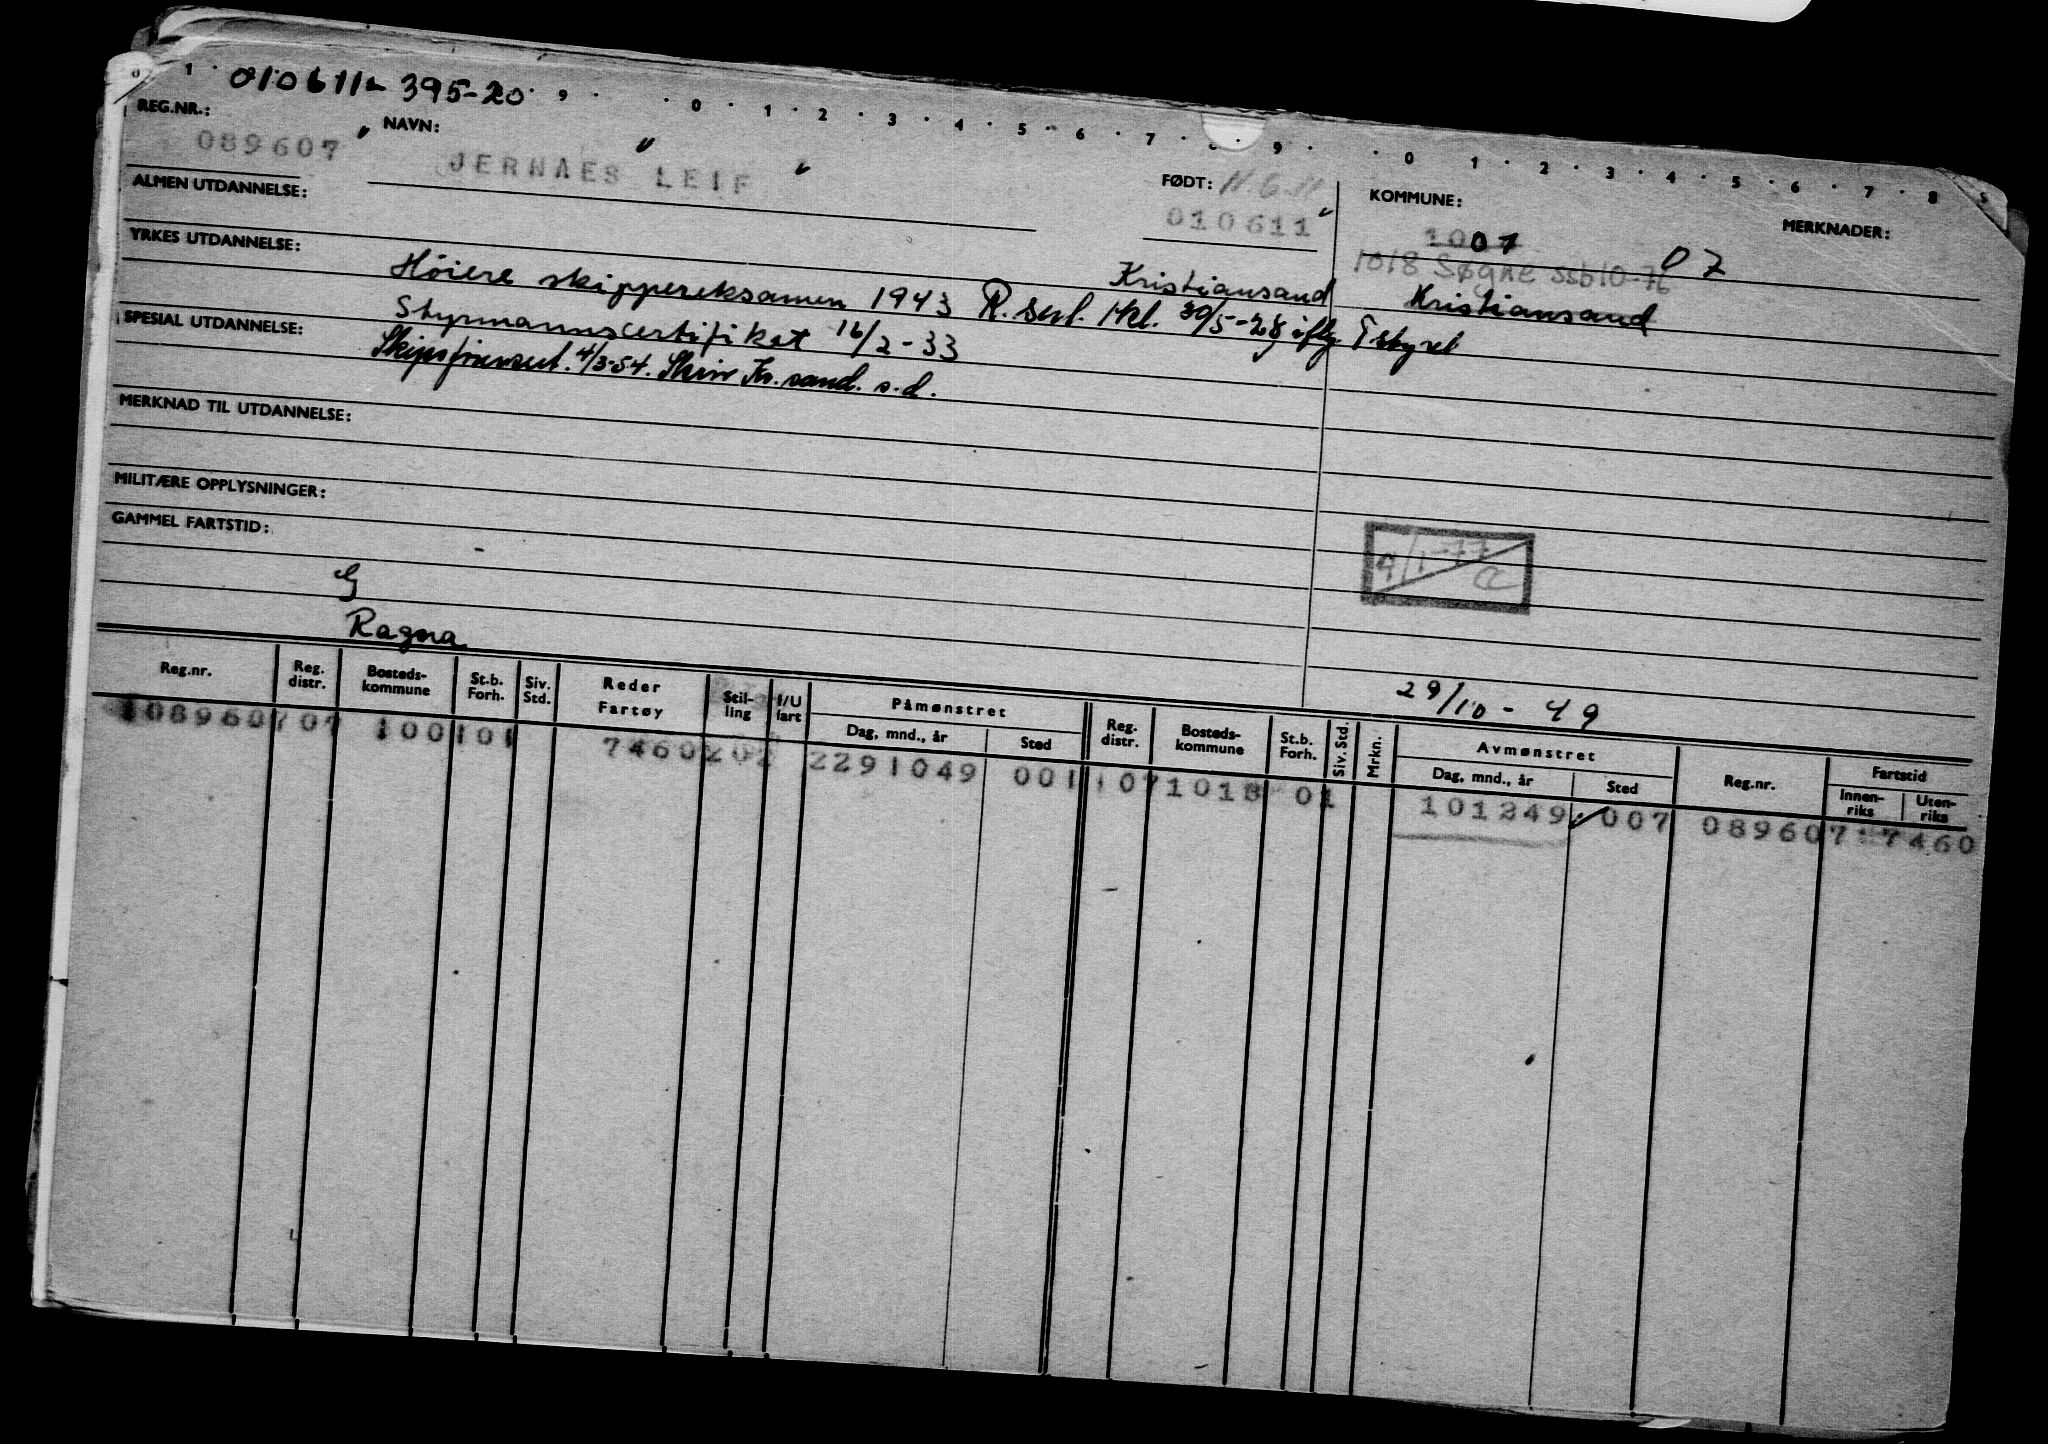 0 1 010611 395-20 9 0 1 2 3 4 5 6 7 8 9 0 1 2 3 4 5 6 7 8 9
REG.NR.: NAVN:
089607 JERNAES LEIF
FØDT: 11.6.11
010611
KOMMUNE: MERKNADER:
07 07
1018 Søgne ssb10-76
ALMEN UTDANNELSE:
YRKES UTDANNELSE: Høiere skippereksamen 1943 Kristiansand Kristiansand
R. sert. 1 kl. 30/5-28 iflg.
Styrmannscertifikat 16/2-33
SPESIAL UTDANNELSE: 4/3-54. Kr. sand. s.d.
MERKNAD TIL UTDANNELSE:
MILITÆRE OPPLYSNINGER:
GAMMEL FARTSTID:
9/1-77
G
Ragna 29/10-49
Reg.nr. Reg. distr. Bosteds-kommune St.b. Forh. Siv. Std. Reder Fartøy Stil-ling I/U fart Påmønstret Dag, mnd., år Sted Reg. distr. Bosteds-kommune St.b. Forh. Siv. Std. Mrkn. Avmønstret Dag, mnd., år Sted Reg.nr. Fartstid Innen-riks Uten-riks
1089607 07 1001 01 7460 202 2291049 001 1 07 1018 01 101249 007 089607 7460